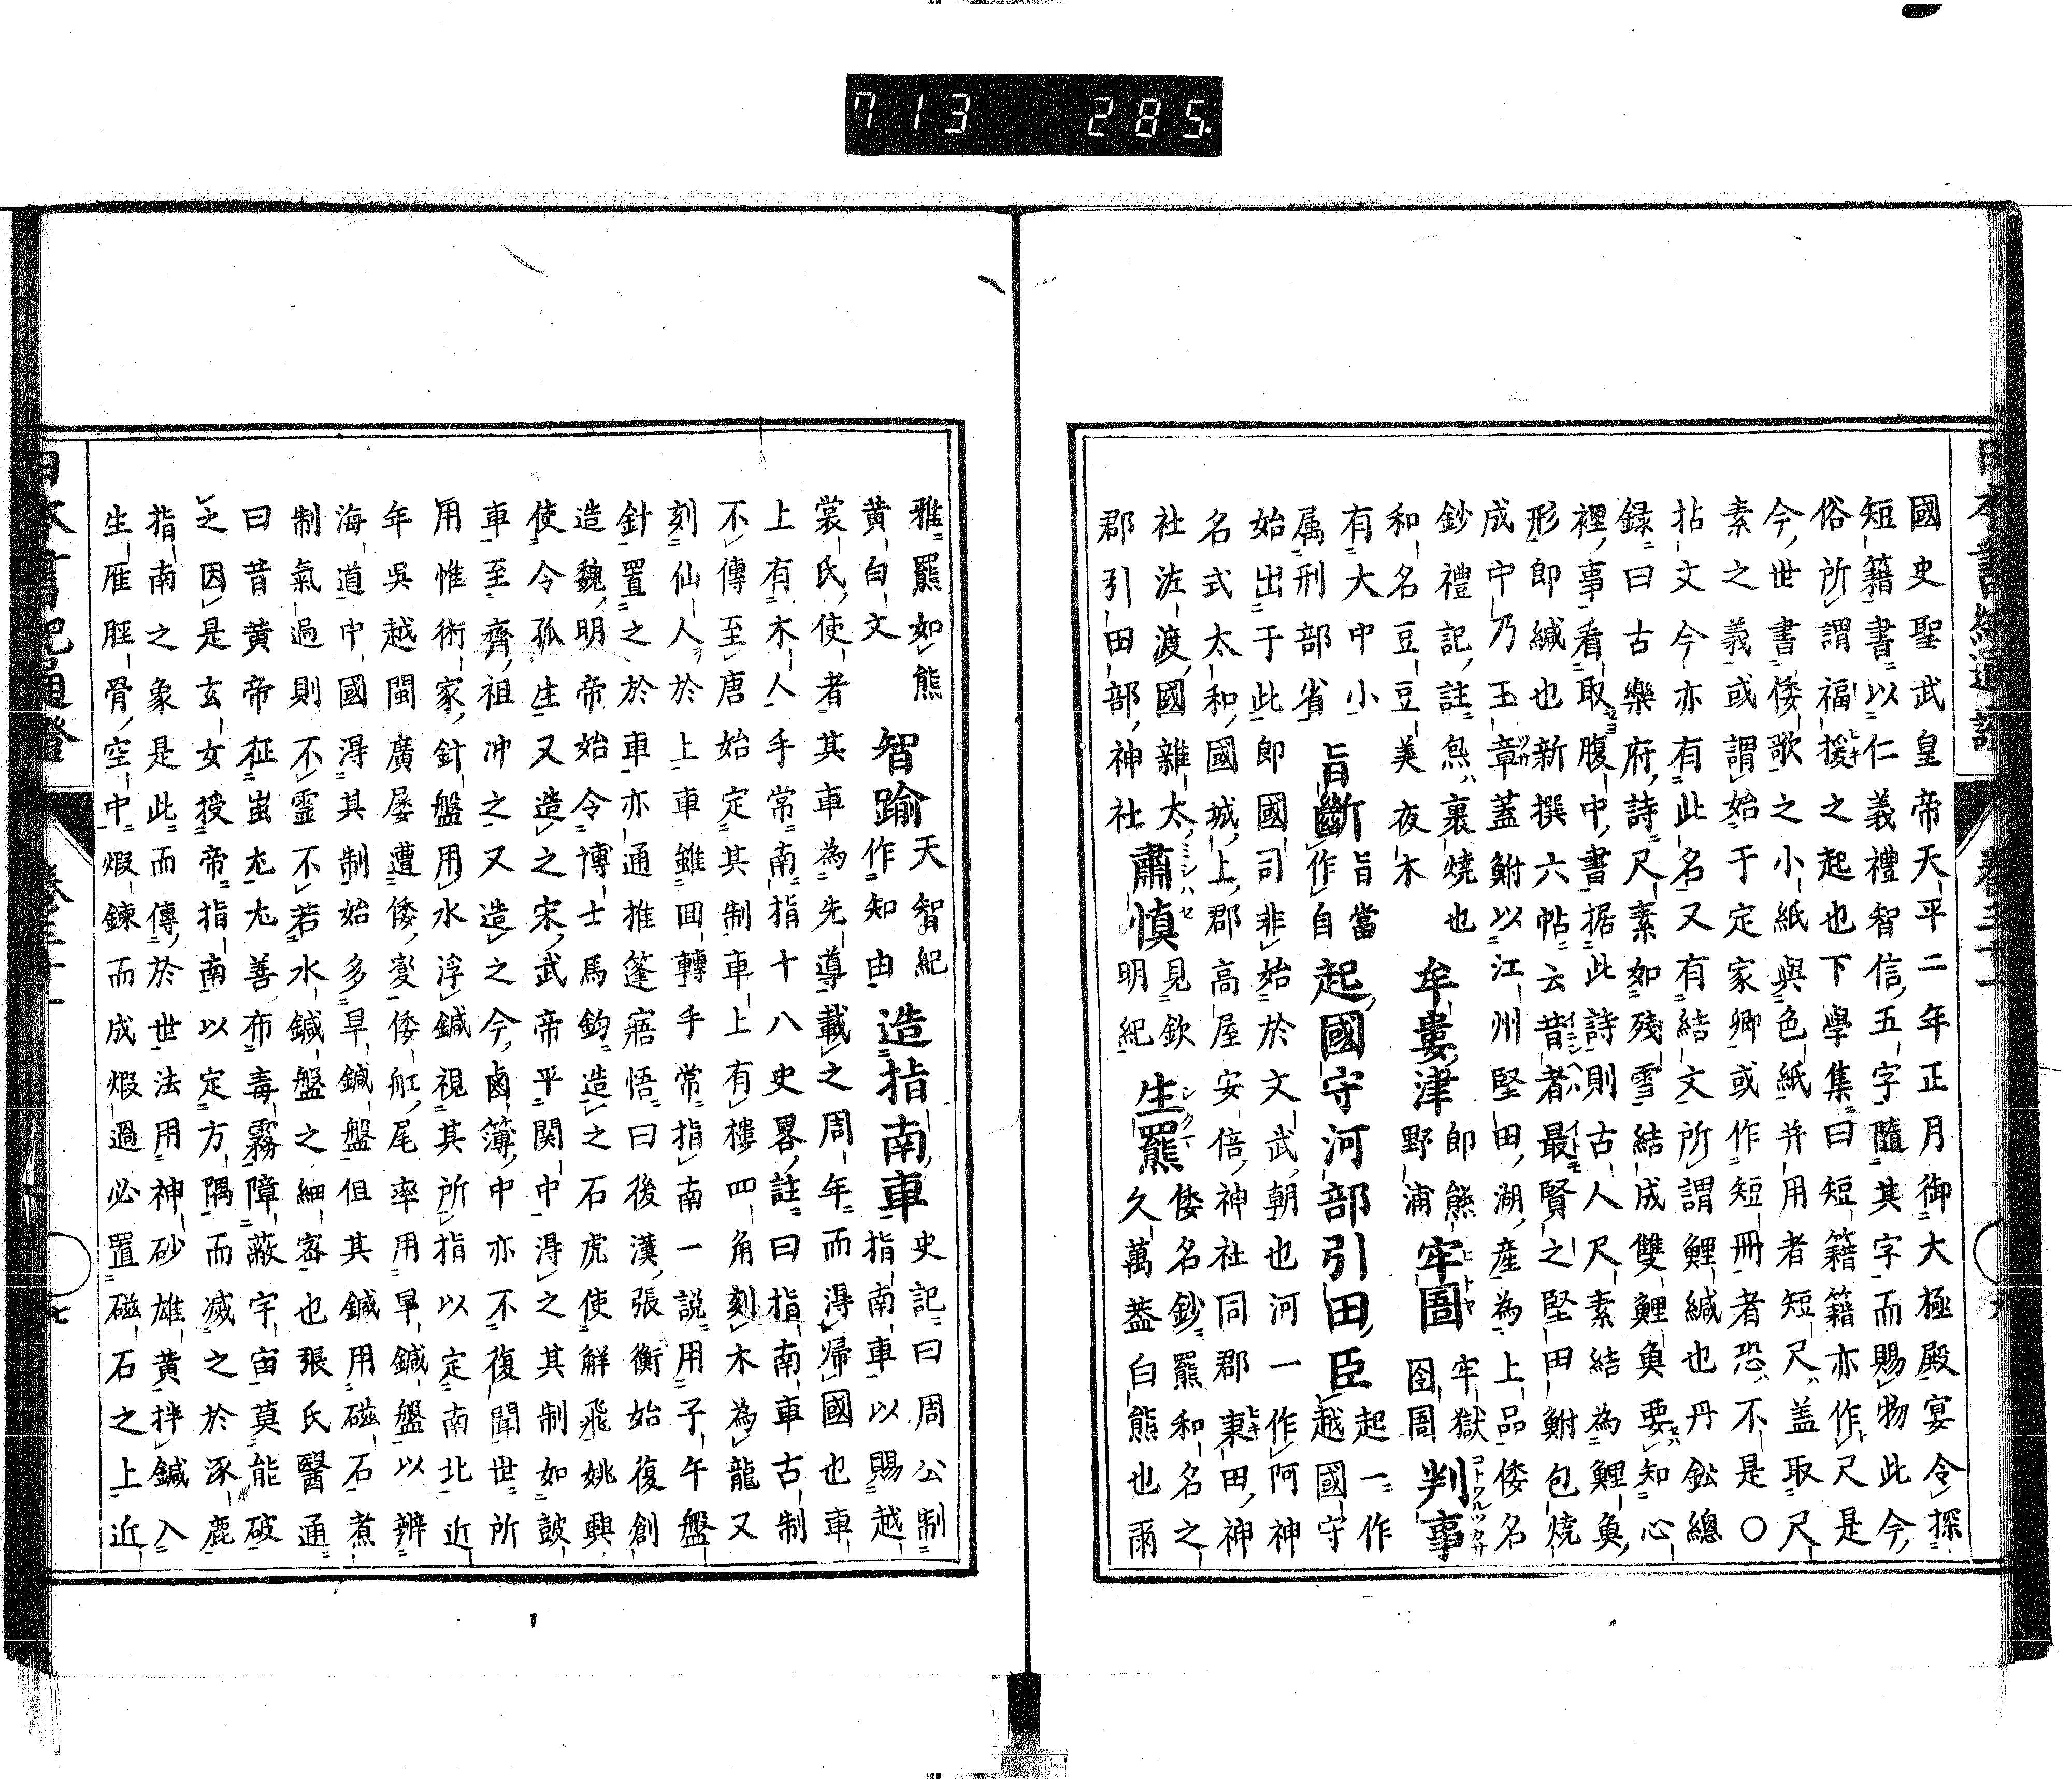 713 285
國史聖武皇帝天平二年正月御大極殿宴令探
短籍書以仁義禮智信五字隨其字而賜物此今
俗所謂福援之起也下學集曰短籍籍亦作尺是
今世書倭歌之小紙與色紙并用者短尺盖取尺
素之義或謂始于定家卿或作短冊者恐不是○
拈文今亦有此名又有結文所謂鯉緘也丹鉛總
録曰古樂府詩尺素如殘雪結成雙鯉魚要知心
裡事看取腹中書据此詩則古人尺素結為鯉魚
形即緘也新撰六帖云昔者最賢之堅田鮒包燒
成中乃玉章蓋鮒以江州堅田湖産為上品倭名
鈔禮記註炰裹燒也
和名豆豆美夜木
牟婁津
即熊
野浦
牢圄
牢獄
囹圄
判事
有大中小
属刑部省
旨斷
旨當
作自
起國守河部引田臣
起一作
越國守
始出于此即國司非始於文武朝也河一作阿神
名式太和國城上郡高屋安倍神社同郡秉田神
社泟渡國雜太
郡引田部神社
肅慎
見欽
明紀
生羆
倭名鈔羆和名之
久萬葢白熊也爾
雅羆如熊
黄白文
智踰
天智紀
作知由
造指南車
史記曰周公制
指南車以賜越
裳氏使者其車為先導載之周年而淂帰國也車
上有木人手常南指十八史畧註曰指南車古制
不傳至唐始定其制車上有樓四角刻木為龍又
刻仙人於上車雖囬轉手常指南一説用子午盤
針置之於車亦通推篷寤悟曰後漢張衡始復創
造魏明帝始令博士馬鈞造之石虎使解飛姚興
使令孤生又造之宋武帝平関中淂之其制如皷
車至齊祖冲之又造之今鹵簿中亦不復聞世所
用惟術家針盤用水浮鍼視其所指以定南北近
年吳越閩廣屡遭倭変倭舡尾率用旱鍼盤以辨
海道中國淂其制始多旱鍼盤伹其鍼用磁石煮
制氣過則不霊不若水鍼盤之細宻也張氏醫通
曰昔黄帝征蚩尤尤善布毒霧障蔽宇宙莫能破
之因是玄女授帝指南以定方隅而滅之於涿鹿
指南之象是此而傳於世法用神砂雄黄拌鍼入
生雁脛骨空中煆鍊而成煆過必置磁石之上近